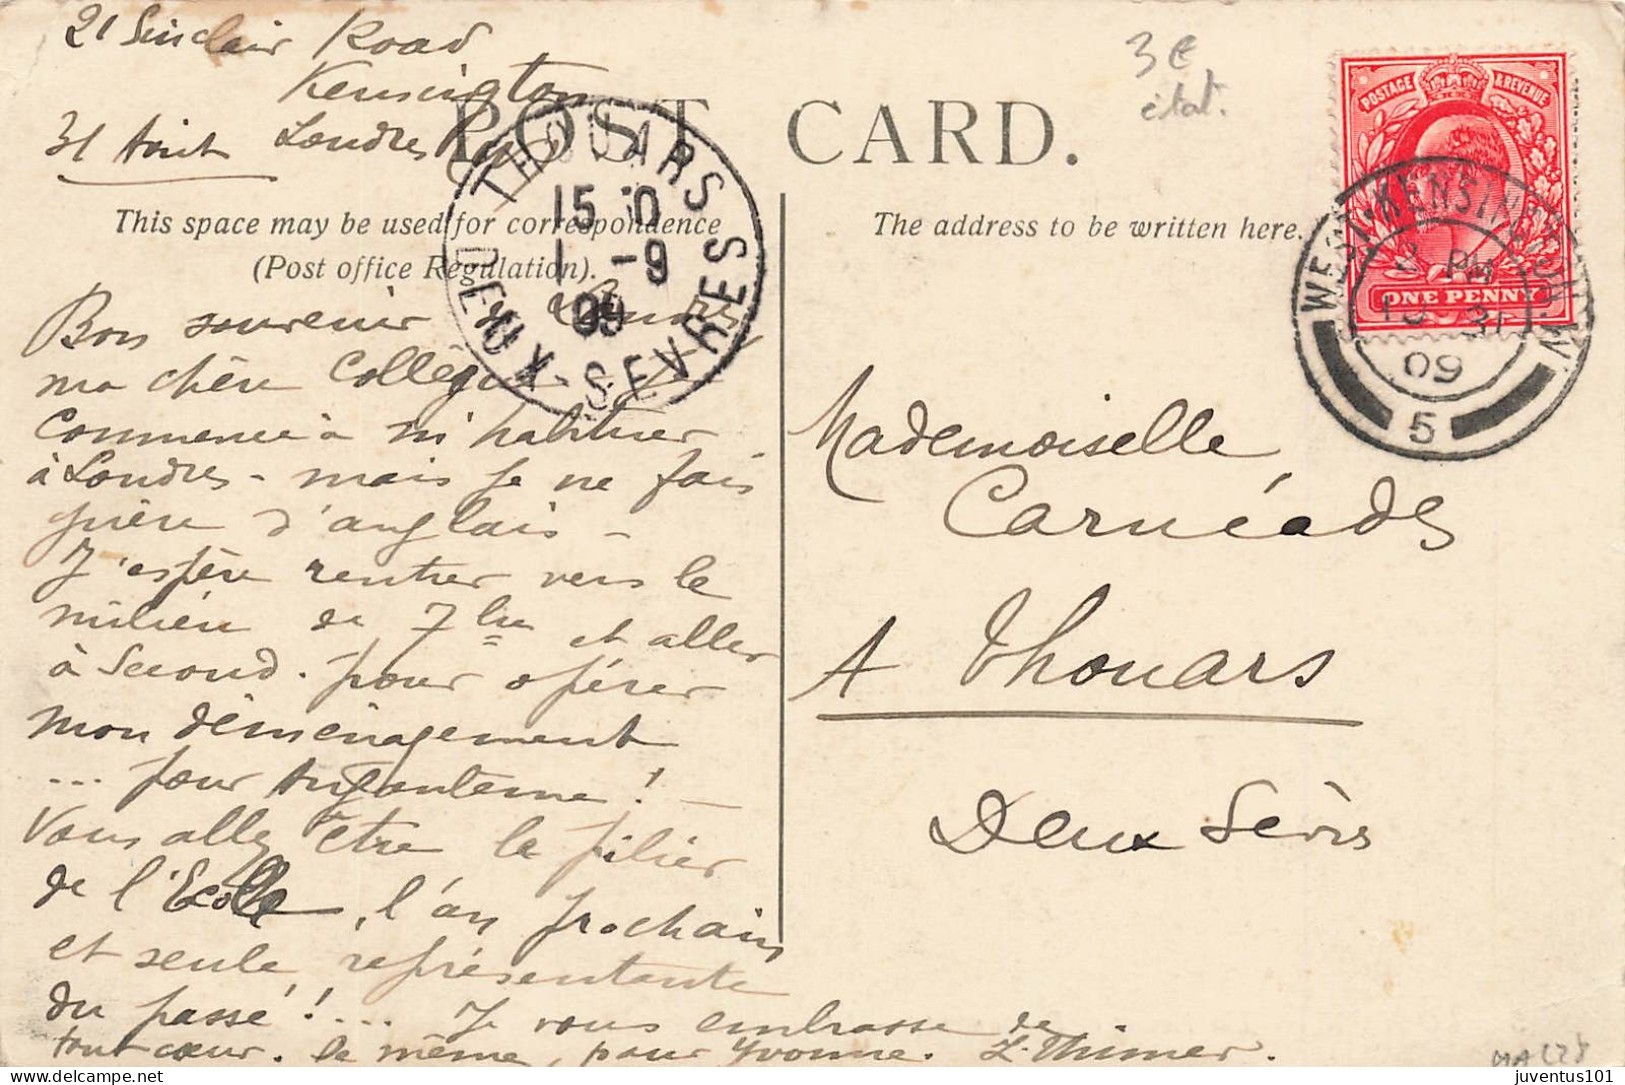 21 Sinclair Road
Kensington
31 Août Londres
POST CARD.
3€
état.
This space may be used for correspondence
(Post office Regulation).
The address to be written here.
THOUARS
15
1 -9
09
DEUX-SEVRES
POSTAGE & REVENUE
ONE PENNY
WEST KENSINGTON
PM
31
09
5
Bon souvenir
ma chère Collègue
Commence à m'habituer
à Londres - mais je ne fais
guère d'anglais -
J'espère rentrer vers le
milieu de 7bre et aller
à Secondi. pour opérer
mon déménagement
... pour Angoulême! -
Vous allez être le pilier
de l'École, l'an prochain
et seule représentante
du passé!... Je vous embrasse de
tout cœur. de même, pour Yvonne.
Mademoiselle
Carnéade
A Thouars
Deux Sèvres
juventus101